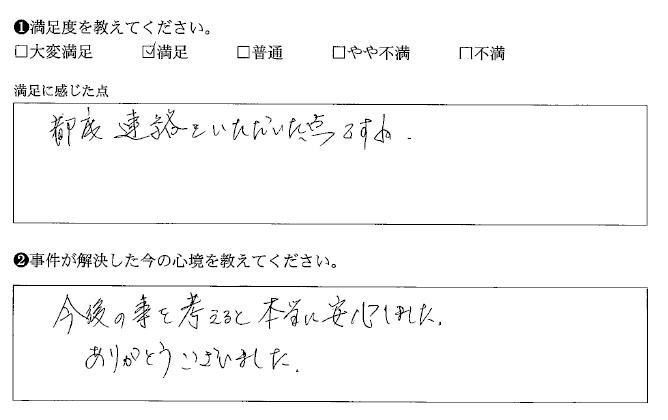 ❶満足度を教えてください。
□大変満足 ☑満足 □普通 □やや不満 □不満
満足に感じた点
都度 連絡をいただいた点ですね.
❷事件が解決した今の心境を教えてください。
今後の事を考えると本当に安心しました.
ありがとうございました.